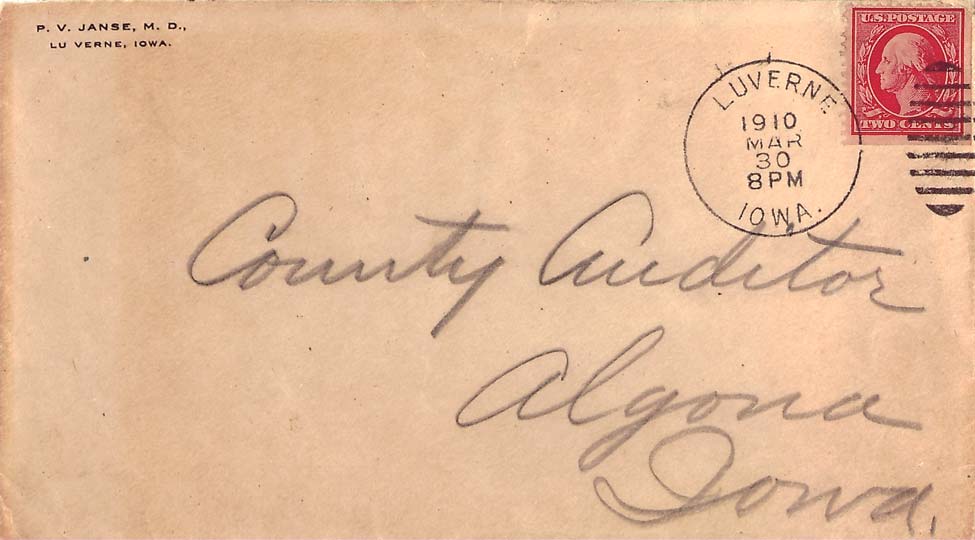 P. V. JANSE, M. D.,
LU VERNE, IOWA.
U.S. POSTAGE
TWO CENTS
LUVERNE
1910
MAR
30
8PM
IOWA.
County Auditor
Algona
Iowa.